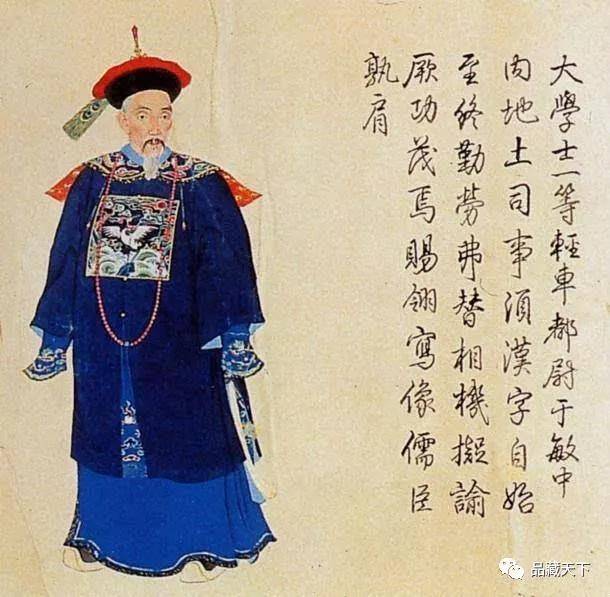 大學士一等輕車都尉于敏中
內地土司事須漢字自始
至終勤勞弗替相機擬諭
厥功茂焉賜翎寫像儒臣
孰肩
品藏天下